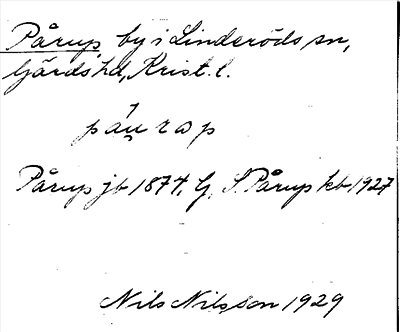 Pårup, by i Linderöds sn,
Gärds hd, Krist. l.
páu̯rap
Pårup jb 1874, G, S. Pårup kb 1927
Nils Nilsson 1929